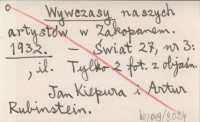 Wywczasy naszych
artystów w Zakopanem.
1932. – Świat 27, nr 3:
, il. Tylko 2 fot. z objaśn.
Jan Kiepura i Artur
Rubinstein.